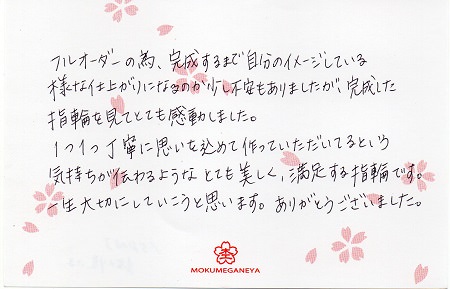 フルオーダーの為、完成するまで自分のイメージしている
様な仕上がりになるのか少し不安もありましたが、完成した
指輪を見てとても感動しました。
1つ1つ丁寧に思いを込めて作っていただいてるという
気持ちが伝わるような とても美しく、満足する指輪です。
一生大切にしていこうと思います。ありがとうございました。
MOKUMEGANEYA